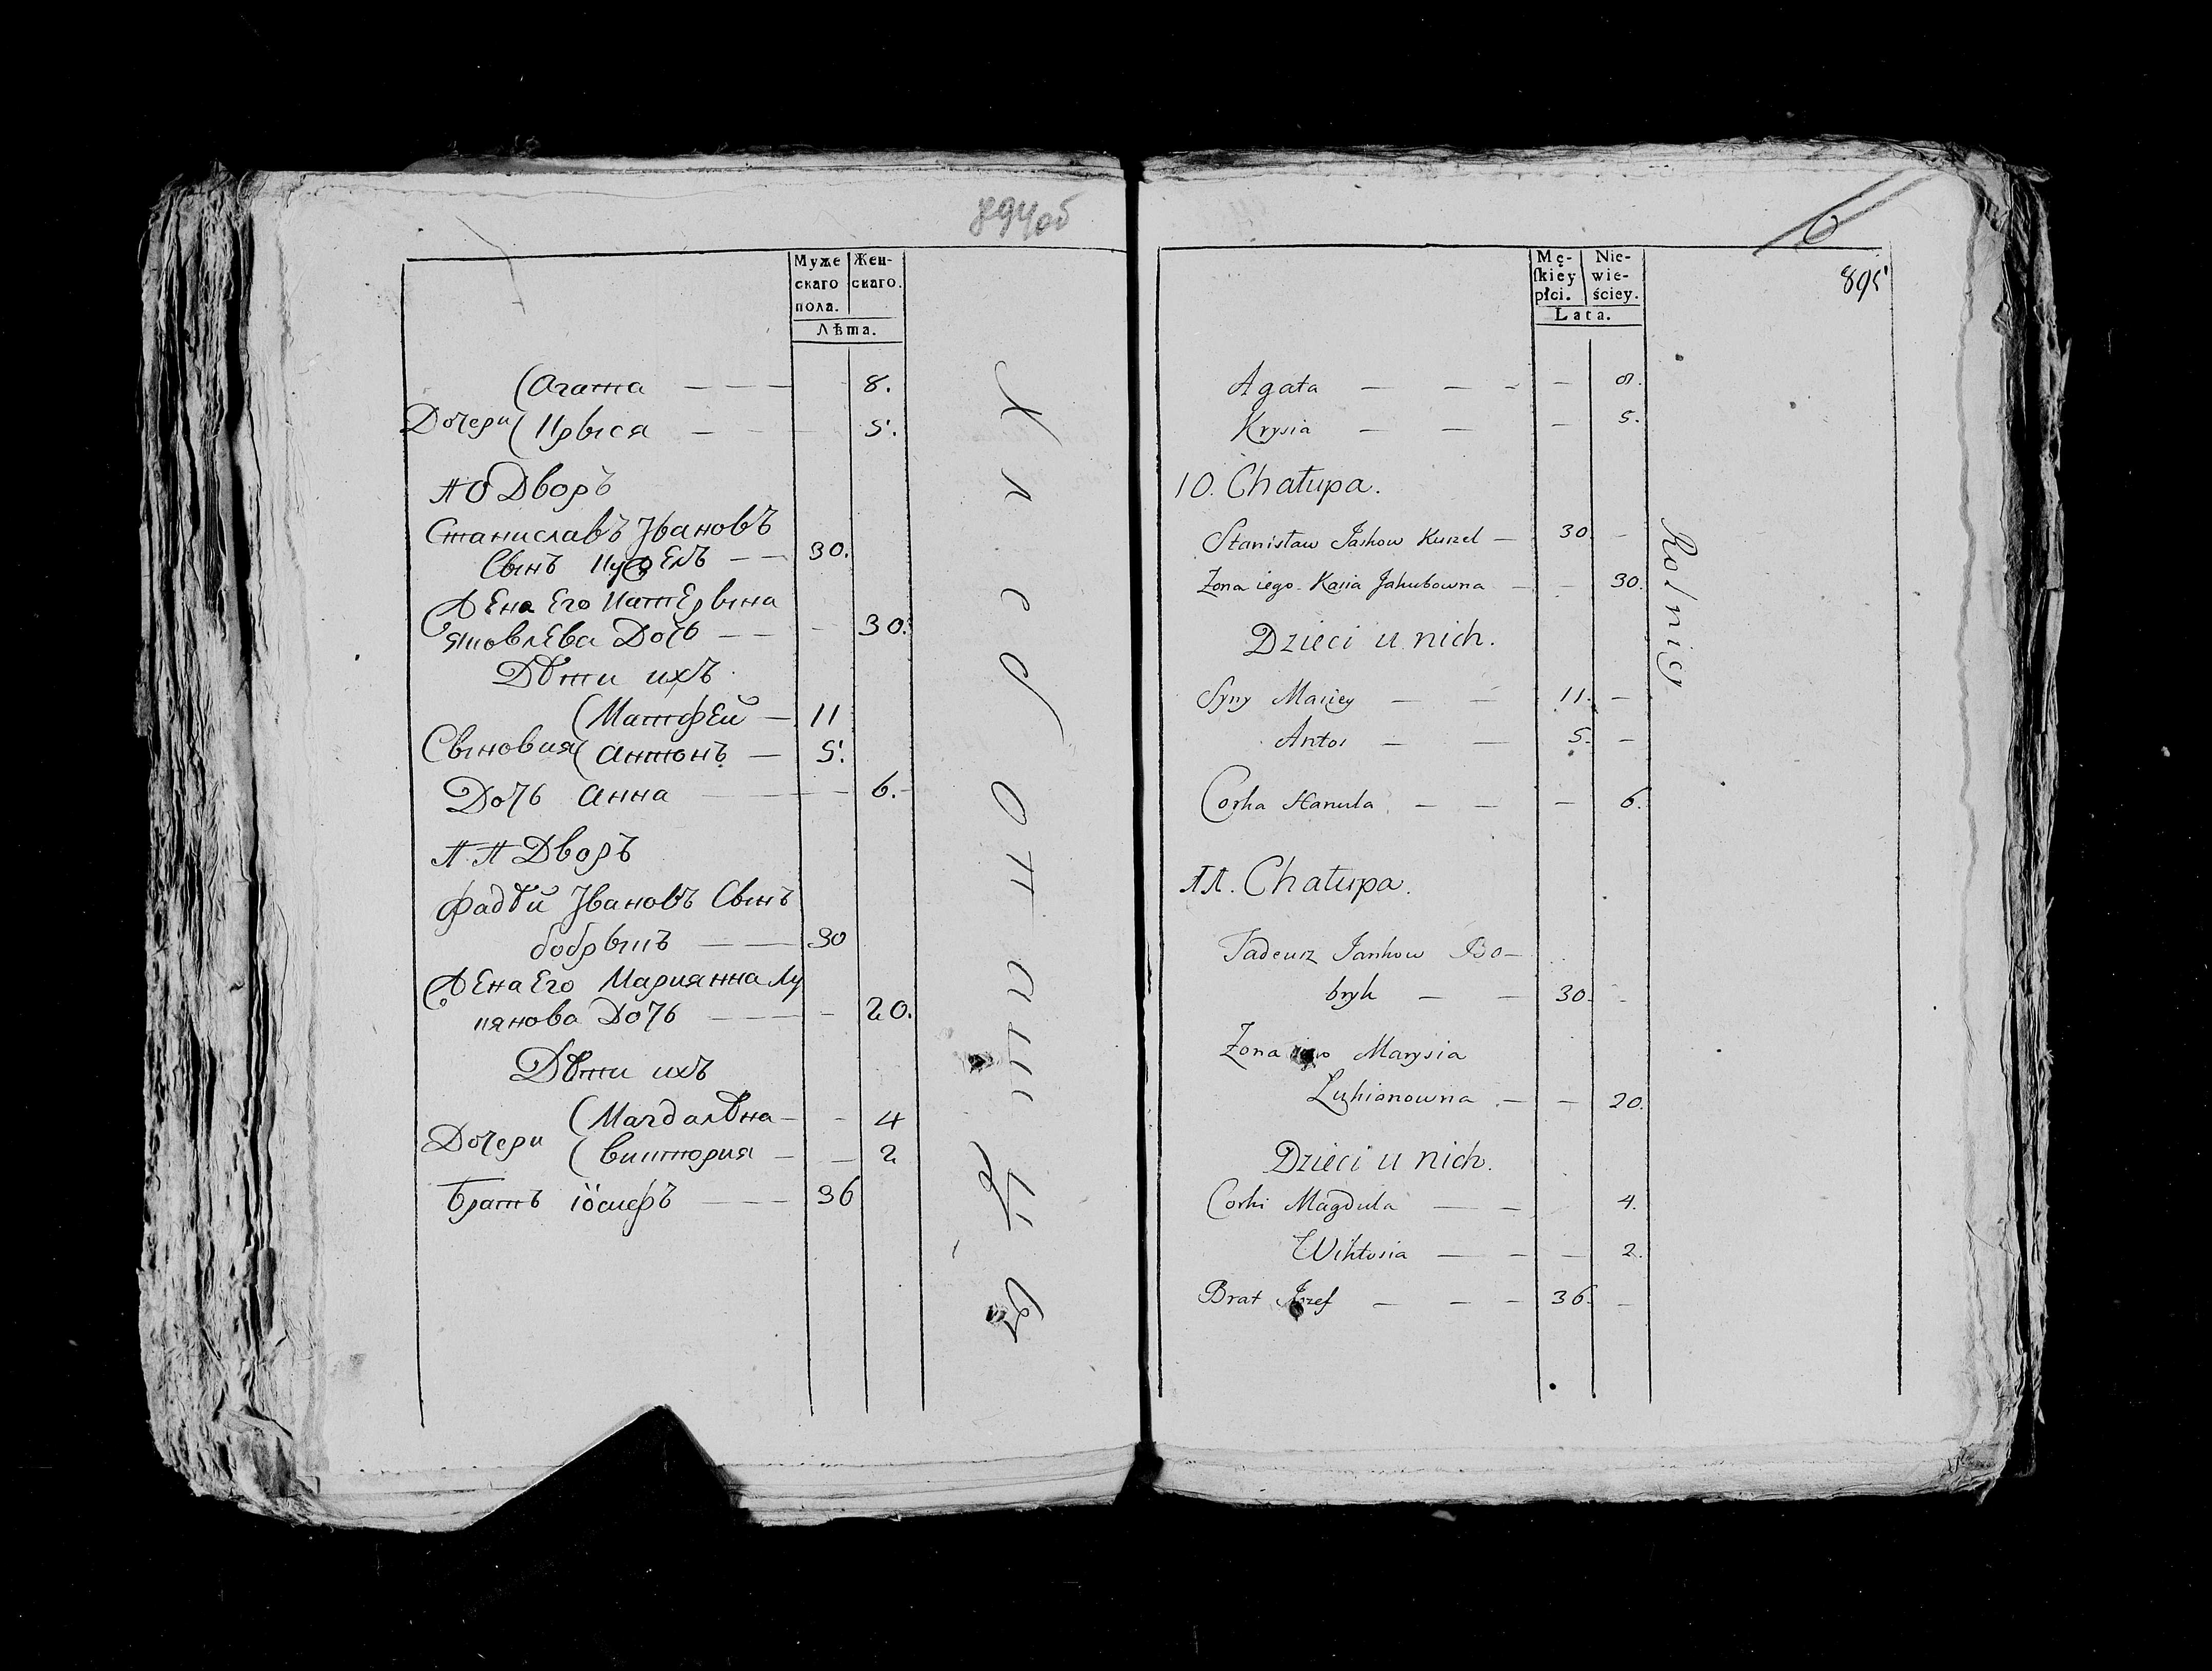 894об
Муже
скаго
пола.
Жен-
скаго.
Лѣта.
(Агата — — — 8.
Дочери ( Крыся — — — 5.
10 Дворъ
Станиславъ Івановъ
Сынъ — — 30.
Жена Его Катерына
Яковлева Дочь — — 30.
Дѣти ихъ
(Матфей — 11
Сыновия( Антонъ — 5.
Дочь Анна — — — 6.
11 Дворъ
Фадѣй Івановъ Сынъ
бобрыкъ — — 30
Жена Его Марианна Лу
кянова Дочь — — — 20.
Дѣти ихъ
(Магдалѣна — — 4
Дочери ( Виктория — — 2
Братъ Іосифъ — — 36
Хлебопашцы
6
895
Mę-
ſkiéy
płci.
Nie-
wie-
ściey.
Lata.
Agata — — — — 8.
Krysia — — — 5.
10. Chałupa.
Stanisław Jaśkow Kuzel — 30. —
Żona iego Kasia Jakubowna — — 30.
Dzieci u nich.
Syny Maciey — — 11. —
Antoś — — 5. —
Corka Hanula — — — 6.
11. Chałupa.
Tadeusz Jankow Bo-
bryk — — 30. —
Żona iego Marysia
Łukianowna — — 20.
Dzieci u nich.
Corki Magdula — — 4.
Wiktosia — — — 2.
Brat Józef — — — 36. —
Rolnicy